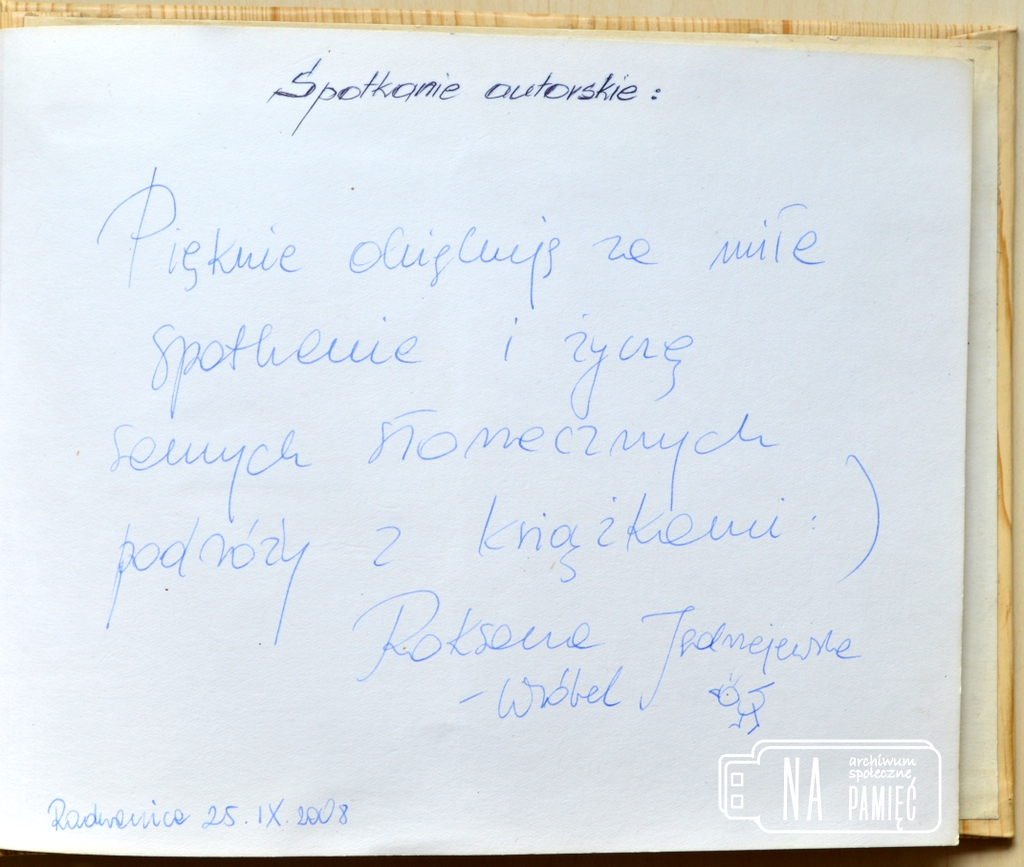 Spotkanie autorskie:
Pięknie dziękuję za miłe
spotkanie i życzę
samych słonecznych
podróży z książkami :)
Roksana Jędrzejewska
-Wróbel
Radwanica 25.IX.2008
NA
archiwum
społeczne
PAMIĘĆ